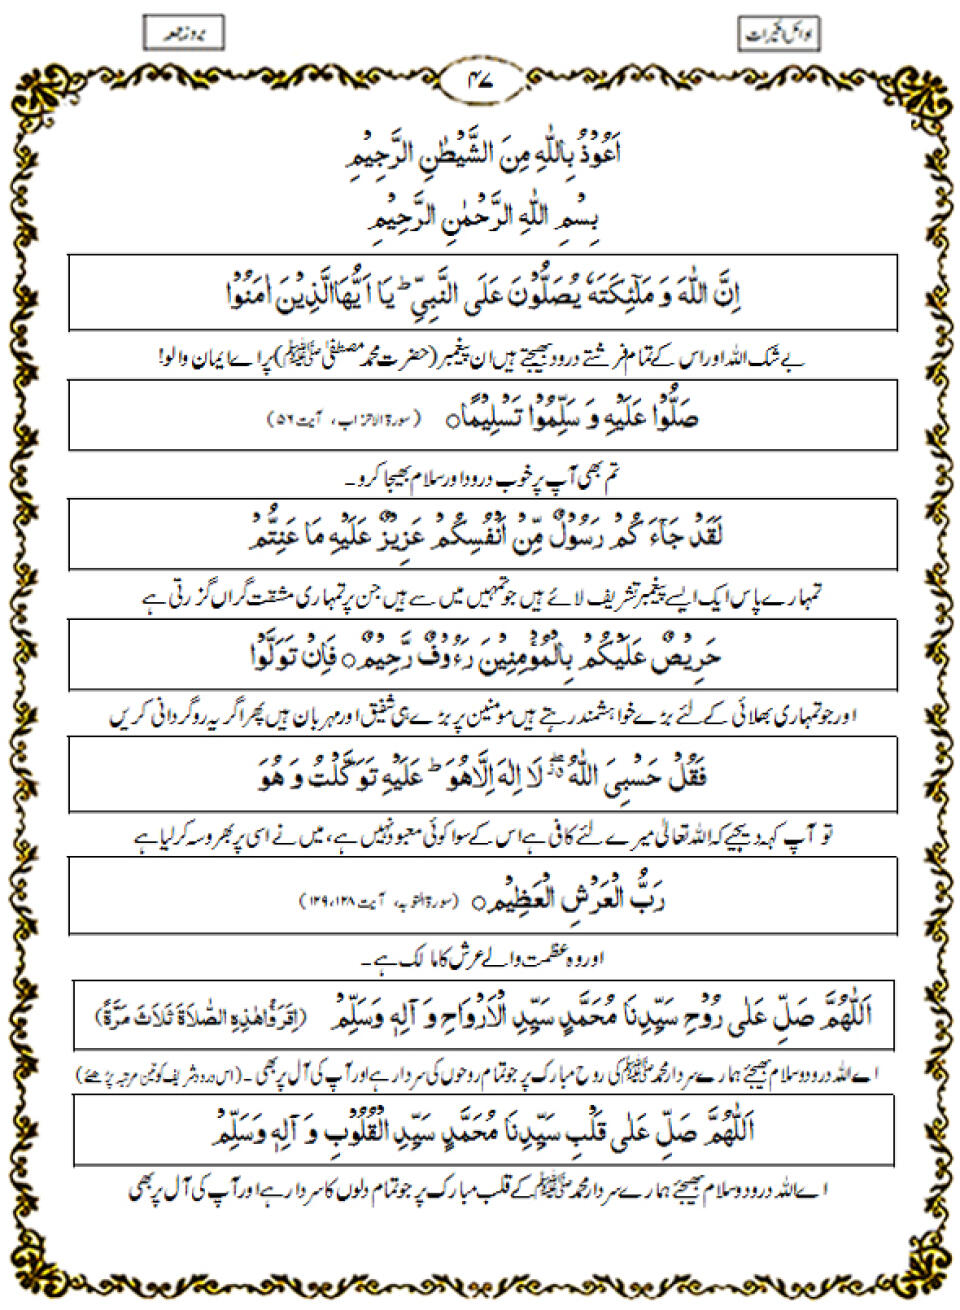 اوائل الخیرات
بروز جمعہ
۴۷
اَعُوْذُ بِاللّٰهِ مِنَ الشَّيْطٰنِ الرَّجِيْمِ
بِسْمِ اللّٰهِ الرَّحْمٰنِ الرَّحِيْمِ
اِنَّ اللّٰهَ وَ مَلٰٓئِكَتَهٗ يُصَلُّوْنَ عَلَى النَّبِىِّ ؕ يَا اَيُّهَاالَّذِيْنَ اٰمَنُوْا
بے شک اللہ اور اس کے تمام فرشتے درود بھیجتے ہیں ان پیغمبر (حضرت محمد مصطفیٰ ﷺ) پر اے ایمان والو!
صَلُّوْا عَلَيْهِ وَ سَلِّمُوْا تَسْلِيْمًا○ (سورۃ الاحزاب، آیت ۵۶)
تم بھی آپ پر خوب درود اور سلام بھیجا کرو۔
لَقَدْ جَآءَ كُمْ رَسُوْلٌ مِّنْ اَنْفُسِكُمْ عَزِيْزٌ عَلَيْهِ مَا عَنِتُّمْ
تمہارے پاس ایک ایسے پیغمبر تشریف لائے ہیں جو تمہیں میں سے ہیں جن پر تمہاری مشقت گراں گزرتی ہے
حَرِيْصٌ عَلَيْكُمْ بِالْمُؤْمِنِيْنَ رَءُوْفٌ رَّحِيْمٌ○ فَاِنْ تَوَلَّوْا
اور جو تمہاری بھلائی کے لئے بڑے خواہشمند رہتے ہیں مومنین پر بڑے ہی شفیق اور مہربان ہیں پھر اگر یہ روگردانی کریں
فَقُلْ حَسْبِىَ اللّٰهُ لَا اِلٰهَ اِلَّاهُوَ ؕ عَلَيْهِ تَوَكَّلْتُ وَ هُوَ
تو آپ کہہ دیجیے کہ اللہ تعالیٰ میرے لئے کافی ہے اس کے سوا کوئی معبود نہیں ہے، میں نے اسی پر بھروسہ کر لیا ہے
رَبُّ الْعَرْشِ الْعَظِيْمِ○ (سورۃ التوبہ، آیت ۱۲۸، ۱۲۹)
اور وہ عظمت والے عرش کا مالک ہے۔
اَللّٰهُمَّ صَلِّ عَلٰى رُوْحِ سَيِّدِنَا مُحَمَّدٍ سَيِّدِ الْاَرْوَاحِ وَ آلِهٖ وَسَلِّمْ (اِقْرَءُاهٰذِهِ الصَّلَاةَ ثَلَاثَ مَرَّةً)
اے اللہ درود و سلام بھیجئے ہمارے سردار محمد ﷺ کی روح مبارک پر جو تمام روحوں کی سردار ہے اور آپ کی آل پر بھی۔ (اس درود شریف کو تین مرتبہ پڑھئے)
اَللّٰهُمَّ صَلِّ عَلٰى قَلْبِ سَيِّدِنَا مُحَمَّدٍ سَيِّدِ الْقُلُوْبِ وَ آلِهٖ وَسَلِّمْ
اے اللہ درود و سلام بھیجئے ہمارے سردار محمد ﷺ کے قلب مبارک پر جو تمام دلوں کا سردار ہے اور آپ کی آل پر بھی